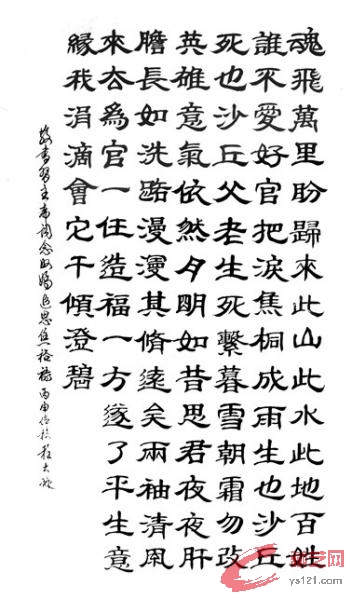 魂飛萬里盼歸來此山此水此地百姓
誰不愛好官把淚焦桐成雨生也沙丘
死也沙丘父老生死繫暮雪朝霜勿改
英雄意氣依然月明如昔思君夜夜肝
膽長如洗路漫漫其脩遠矣兩袖清風
來去為官一任造福一方遂了平生意
緣我涓滴會它千傾澄碧
恭書習主席詞念奴嬌追思焦裕祿丙申
ys121.com